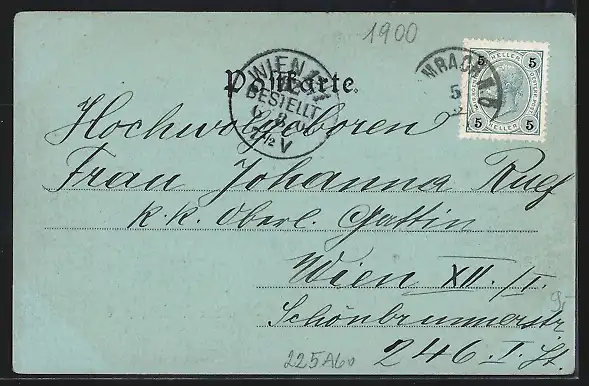 1900
Postkarte.
WIEN
BESTELLT
HELLER
5 5
5 5
HELLER
Hochwolgeboren
Frau Johanna Ruef
k. k. Oberl. Gattin
Wien XII./I.
Schönbrunnerstr.
246 I. St.
225A60
95